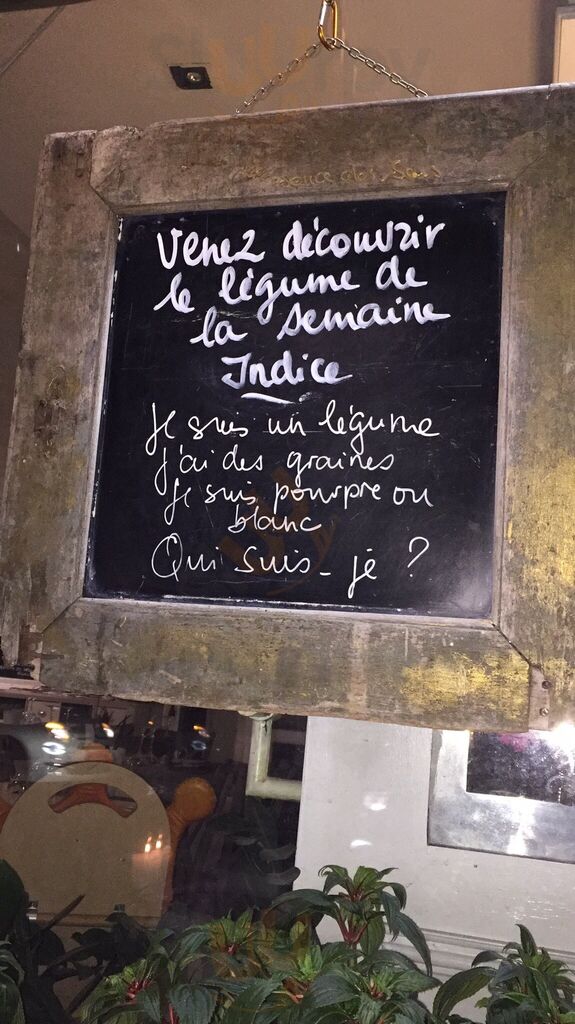 Venez découvrir
le légume de
la semaine
Indice
Je suis un légume
j'ai des graines
Je suis pourpre ou
blanc
Qui suis-je ?